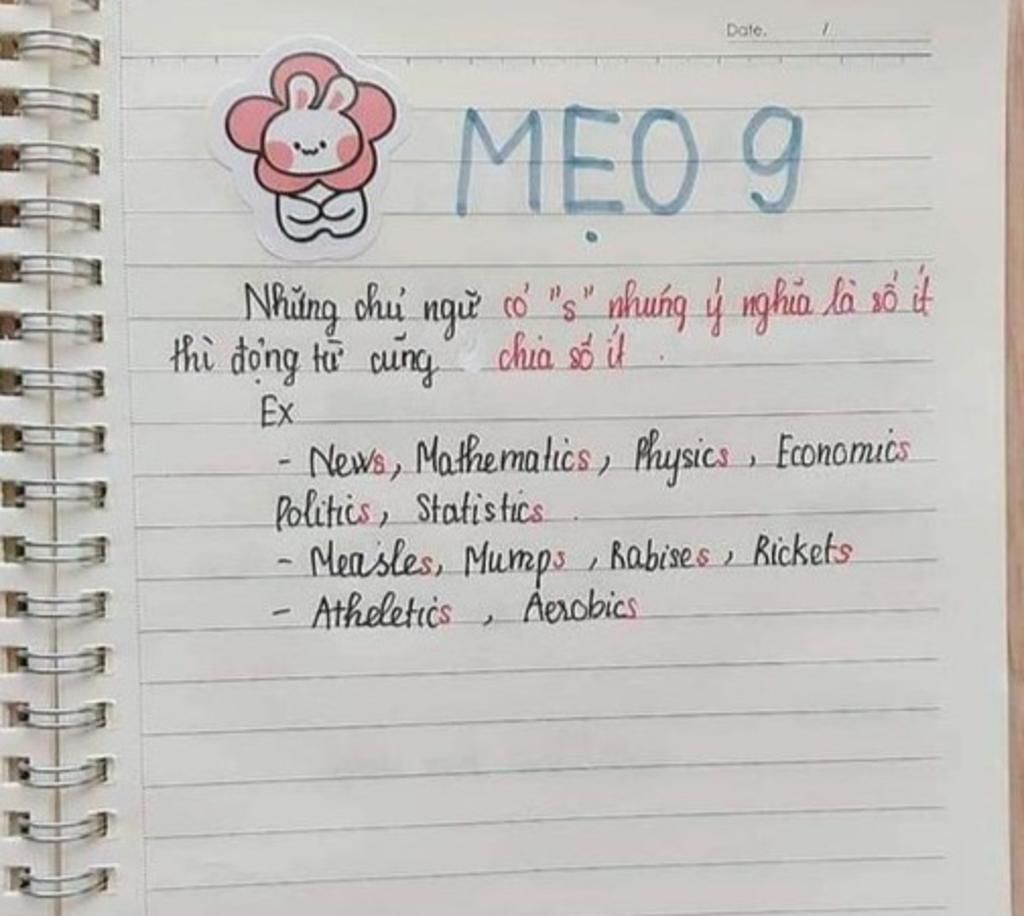 Date. /
MẸO 9
Những chủ ngữ có "s" nhưng ý nghĩa là số ít
thì động từ cũng chia số ít .
Ex
- News, Mathematics, Physics, Economics
Politics, Statistics.
- Measles, Mumps, Rabises, Rickets
- Atheletics, Aerobics